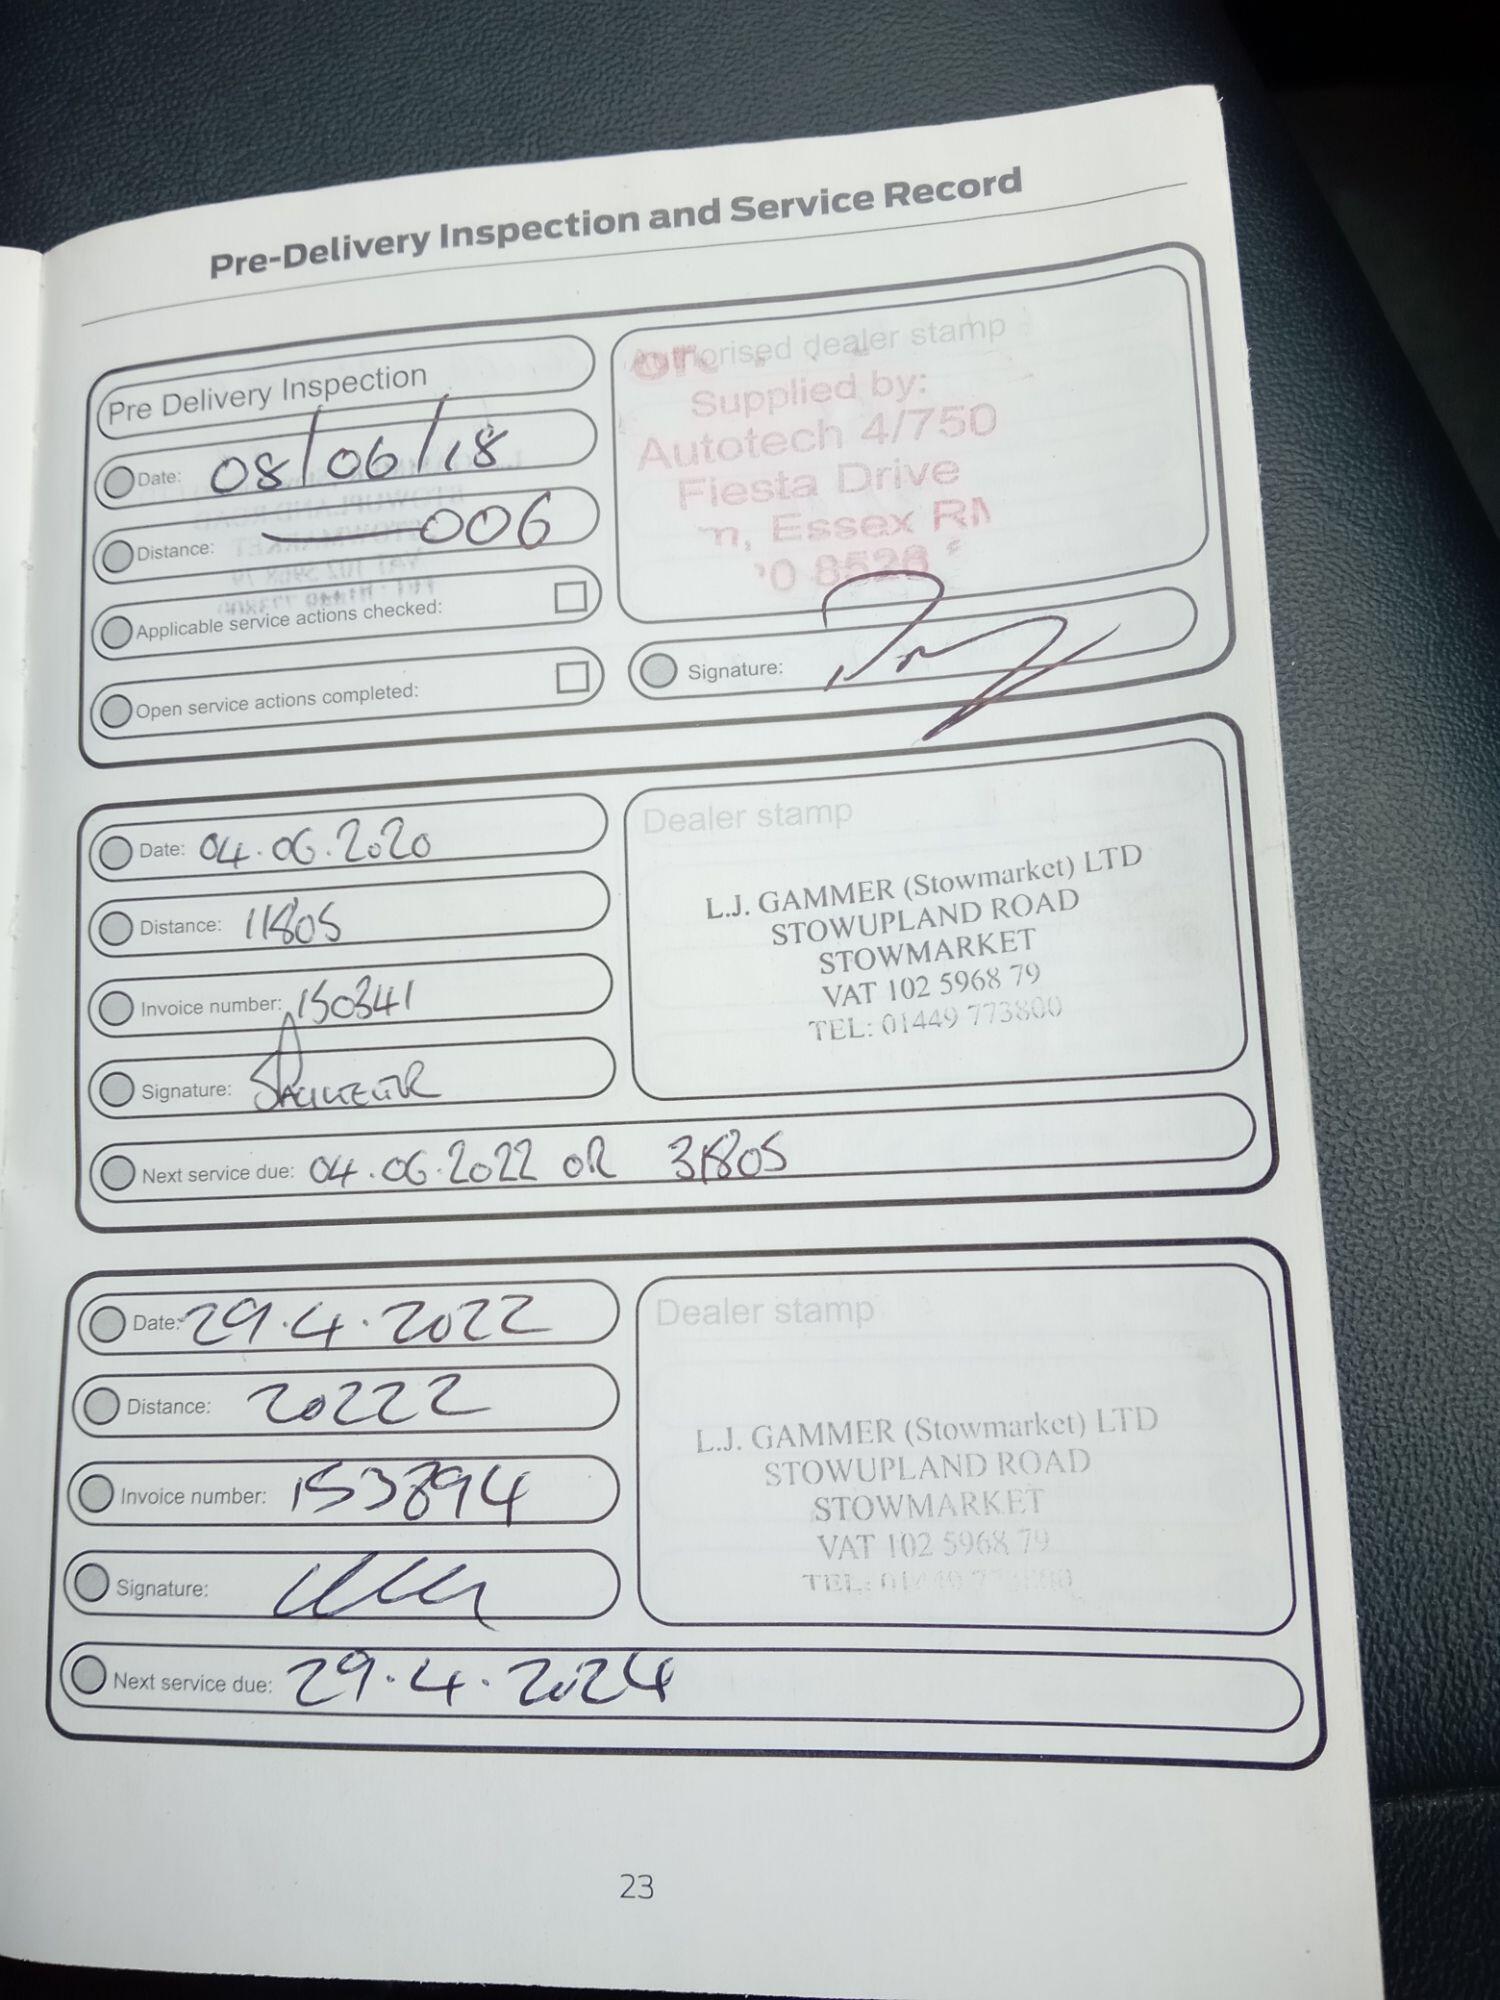 Pre-Delivery Inspection and Service Record
Pre Delivery Inspection
Date: 08/06/18
Distance: 006
Applicable service actions checked:
Open service actions completed:
Authorised dealer stamp
Supplied by:
Autotech 4/750
Fiesta Drive
Essex RM
8528
Signature:
Date: 04.06.2020
Distance: 11805
Invoice number: 150341
Signature:
Next service due: 04.06.2022 OR 31805
Dealer stamp
L.J. GAMMER (Stowmarket) LTD
STOWUPLAND ROAD
STOWMARKET
VAT 102 5968 79
TEL: 01449 773800
Date: 29.4.2022
Distance: 20222
Invoice number: 153894
Signature:
Next service due: 29.4.2024
Dealer stamp
L.J. GAMMER (Stowmarket) LTD
STOWUPLAND ROAD
STOWMARKET
VAT 102 5968 79
TEL: 01449 773800
23